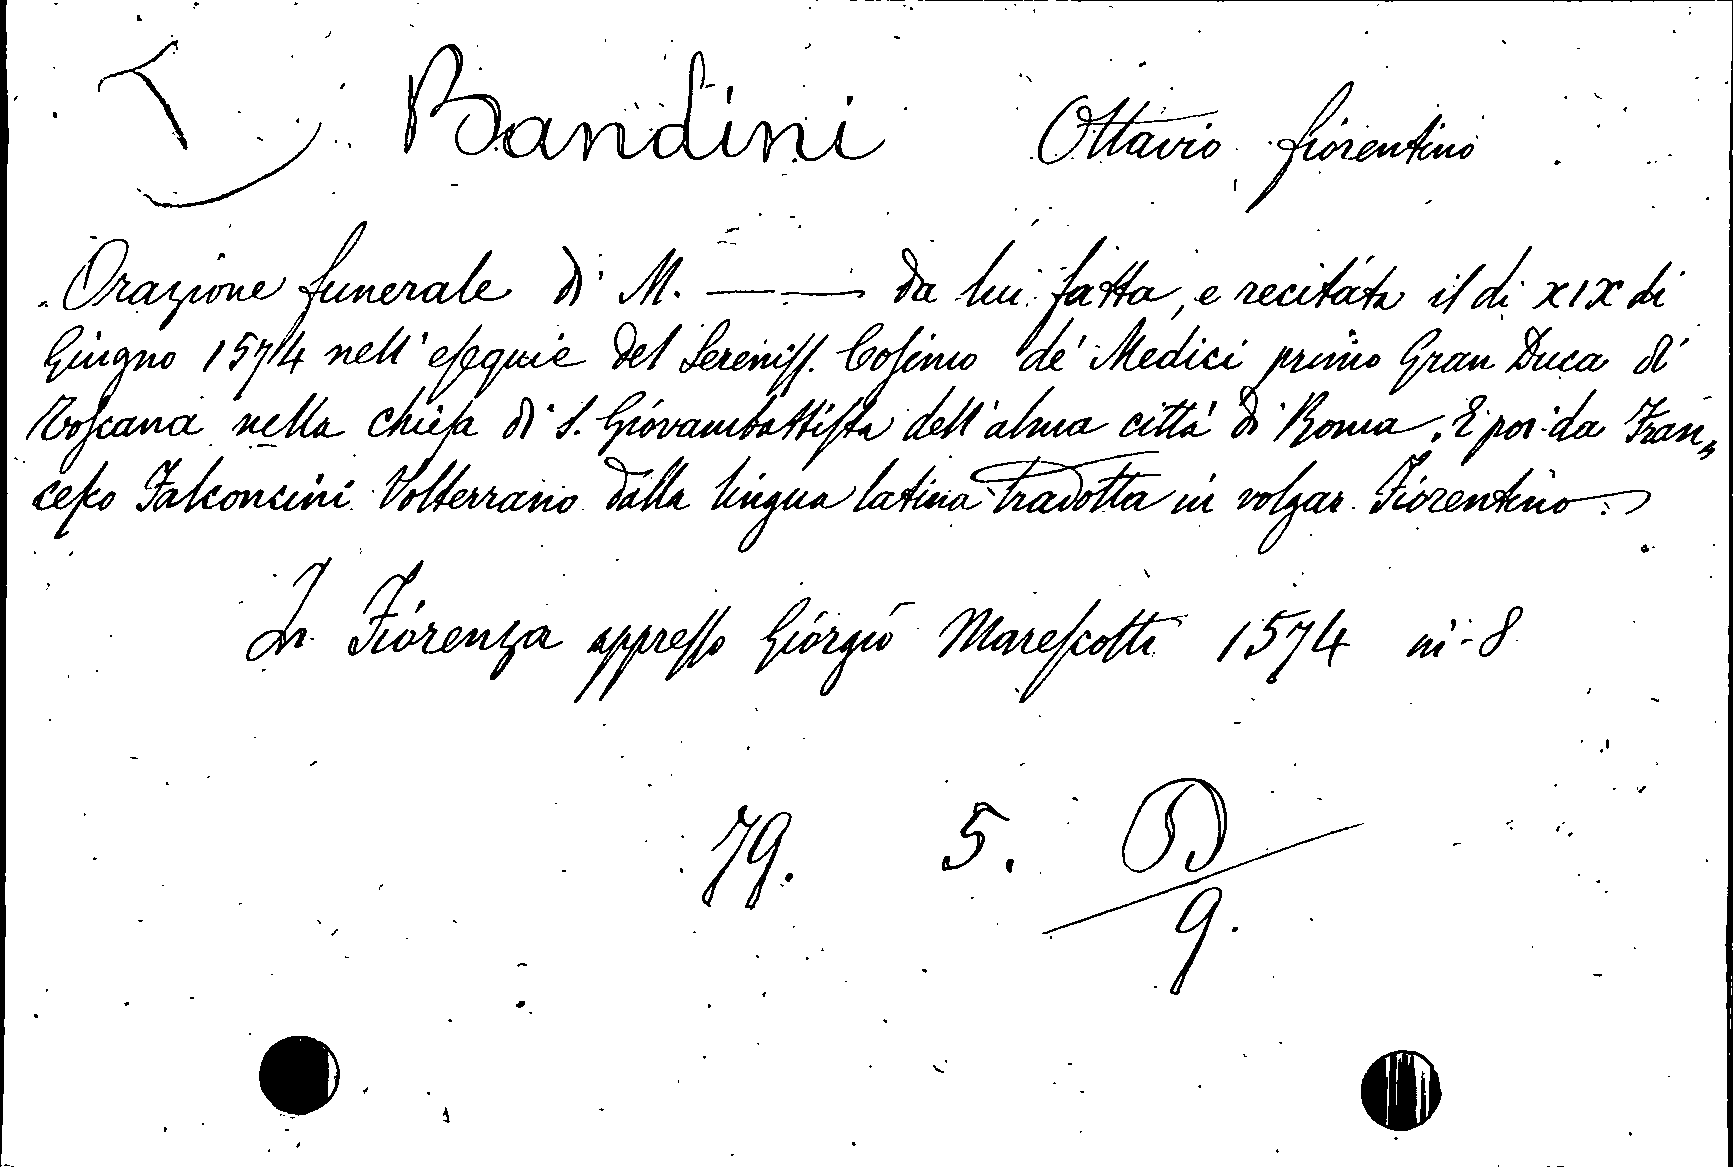 Bandini Ottavio fiorentino
Orazione funerale di M. —— da lui fatta, e recitata il di XIX di
Giugno 1574 nell' eſequie del Sereniſſ. Coſimo de' Medici primo Gran Duca di
Toſcana nella chieſa di S. Giovambattiſta dell' alma città di Roma. E poi da Fran„
ceſco Falconcini Volterrano dalla lingua latina tradotta in volgar Fiorentino.
In Fiorenza appreſſo Giorgio Mareſcotti 1574 in-8
79. 5. D
9.